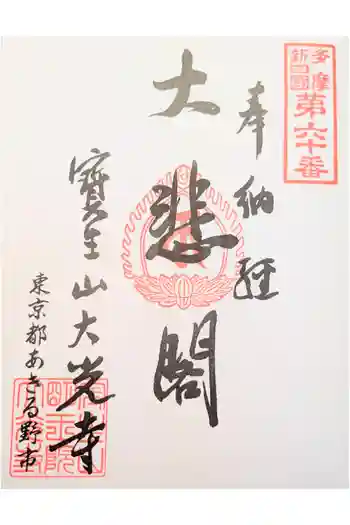 多摩
新四国
第六十番
奉納経
大悲閣
寳生山大光寺
東京都あきる野市